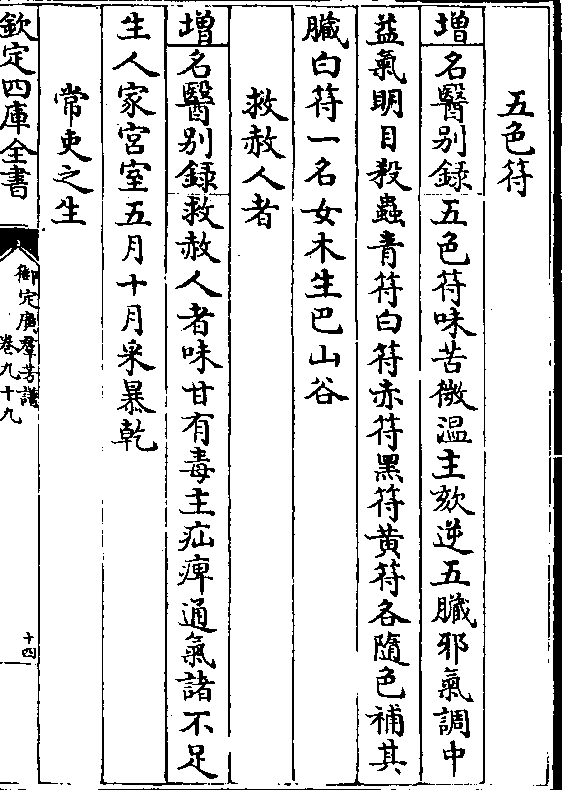 五色符
增名醫别録五色符味苦微温主欬逆五臓邪氣調中
益氣明目殺蟲青符白符赤符黑符黄符各隨色補其
臓白符一名女木生巴山谷
救赦人者
增名醫别録救赦人者味甘有毒主疝痺通氣諸不足
生人家宫室五月十月采暴乾
常吏之生
欽定四庫全書
御定廣羣芳譜
卷九十九
十四